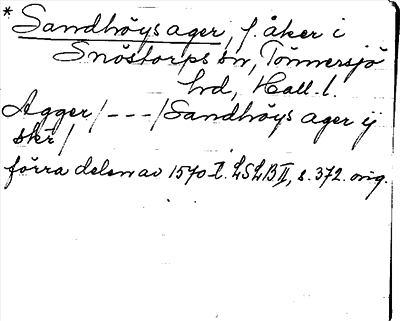 * Sandhöys ager, f. åker i
Snöstorps sn, Tönnersjö
hd, Hall. l.
Agger/---/Sandhöys ager ij
skr/
förra delen av 1570-t. LSLB II, s. 372. orig.